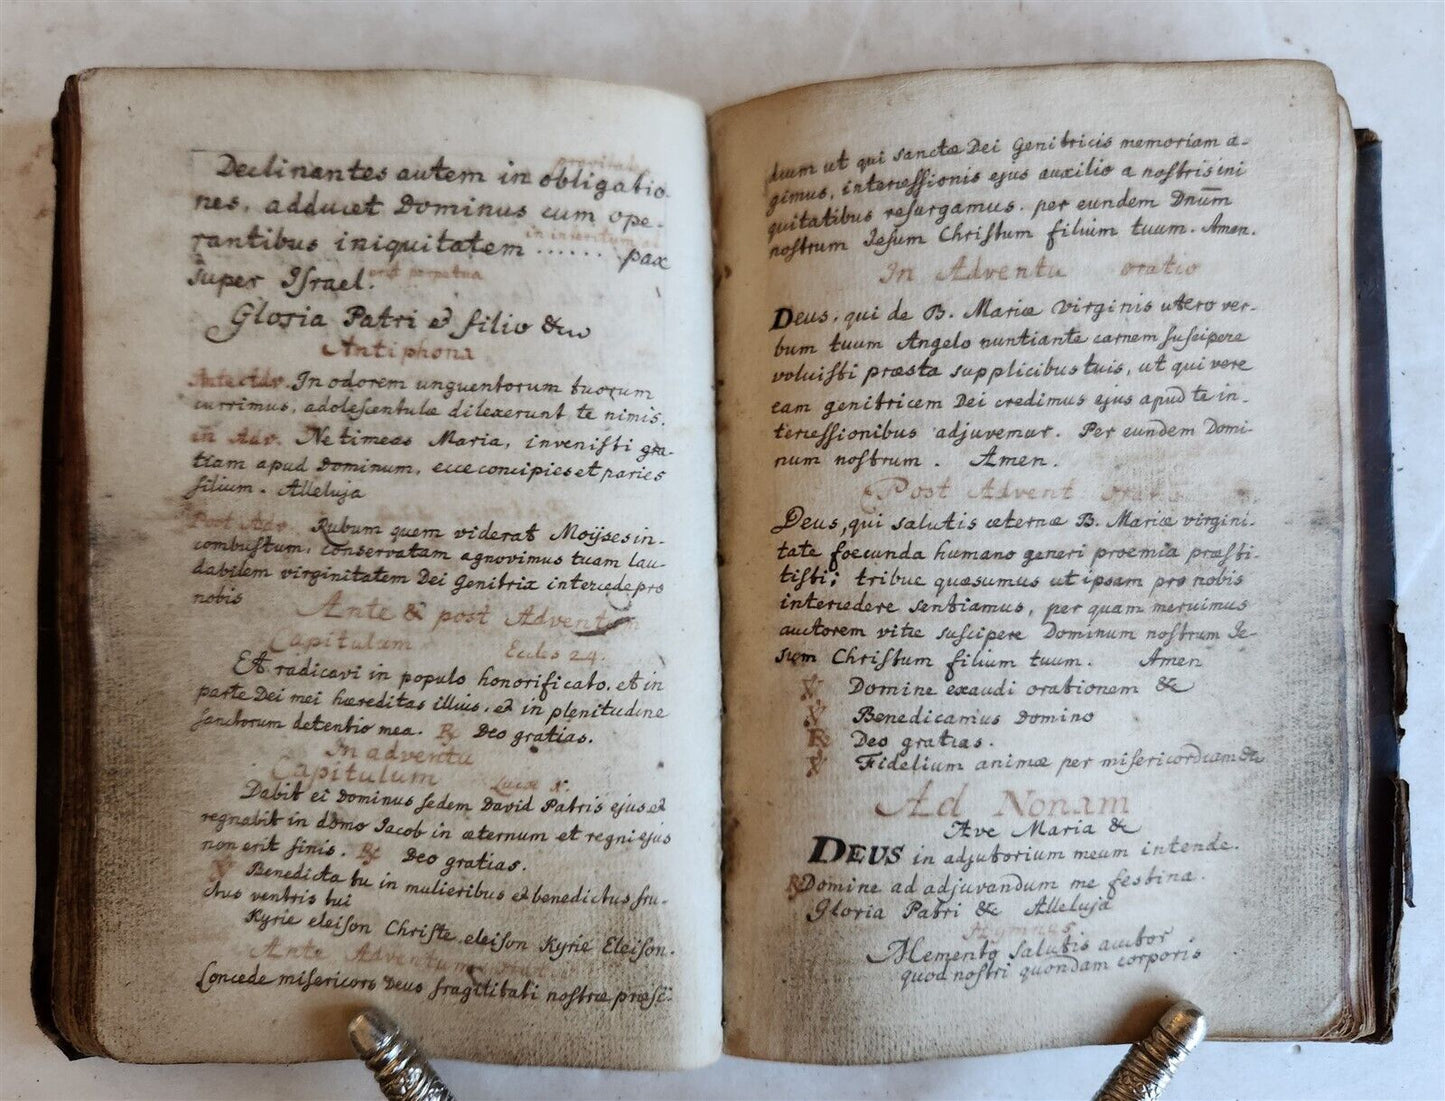 Declinantes autem in obligatio
nes, adducet Dominus cum ope-
rantibus iniquitatem ...... pax
super Israel.
Gloria Patri & filio &c
Antiphona
Ante Adv. In odorem unguentorum tuorum
currimus, adolescentulæ dilexerunt te nimis.
in Adv. Ne timeas Maria, invenisti gra-
tiam apud Dominum, ecce concipies et paries
filium. Alleluja
Post Adv. Rubum quem viderat Moijses in-
combustum, conservatam agnovimus tuam lau-
dabilem virginitatem Dei Genitrix intercede pro
nobis
Ante & post Adventum
Capitulum Eccles 24.
Et radicavi in populo honorificato, et in
parte Dei mei hæreditas illius, & in plenitudine
sanctorum detentio mea. ℟ Deo gratias.
In adventu
Capitulum Lucæ 1.
Dabit ei Dominus sedem David Patris ejus et
regnabit in domo Jacob in æternum et regni ejus
non erit finis. ℟ Deo gratias.
℣ Benedicta tu in mulieribus & benedictus fru-
ctus ventris tui
Kyrie eleison Christe eleison Kyrie Eleison.
Ante Adventum
Concede misericors Deus fragilitati nostræ præsi-
dium ut qui sanctæ Dei Genitricis memoriam a-
gimus, intercessionis ejus auxilio a nostris ini
quitatibus resurgamus. per eundem Dnūm
nostrum Jesum Christum filium tuum. Amen.
In Adventu oratio
Deus, qui de B. Mariæ Virginis utero ver-
bum tuum Angelo nuntiante carnem suscipere
voluisti præsta supplicibus tuis, ut qui vere
eam genitricem Dei credimus ejus apud te in-
tercessionibus adjuvemur. Per eundem Domi-
num nostrum. Amen.
Post Advent
Deus, qui salutis æternæ B. Mariæ virgini-
tate foecunda humano generi proemia præsti-
tisti; tribue quæsumus ut ipsam pro nobis
intercedere sentiamus, per quam meruimus
auctorem vitæ suscipere Dominum nostrum Je-
sum Christum filium tuum. Amen
℣ Domine exaudi orationem &
℣ Benedicamus Domino
℟ Deo gratias.
℣ Fidelium animæ per misericordiam &
Ad Nonam
Ave Maria &
DEUS in adjutorium meum intende.
℟ Domine ad adjuvandum me festina.
Gloria Patri & Alleluja
Hymnus
Memento salutis auctor
quod nostri quondam corporis